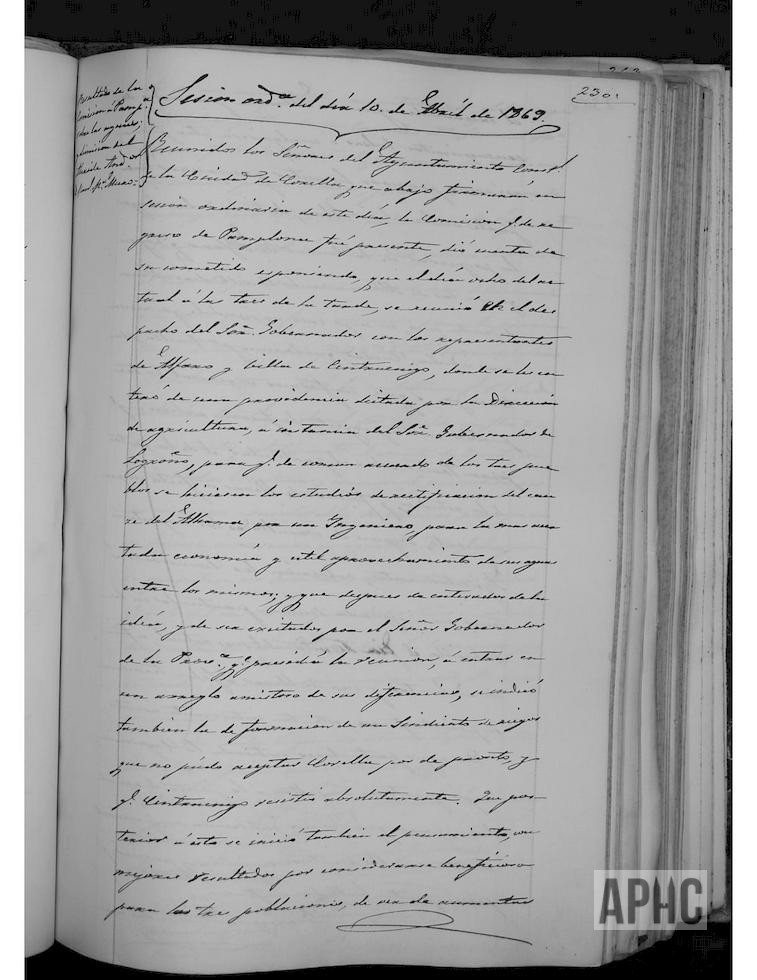 230.
Resultado de la
Comision á Pamp.ª
sobre las aguas;
y dimision del
Alcalde
Sesion ord.ª del dia 10 de Abril de 1869.
Reunidos los Señores del Ayuntamiento Const.l
de la Ciudad de Corella que abajo firmarán en
sesion ordinaria de este dia, la Comision q. de re
greso de Pamplona fué presente, dió cuenta de
su cometido esponiendo, que el dia ocho del ac
tual á las tres de la tarde, se reunió en el des
pacho del Sor. Gobernador con los representantes
de Alfaro y Villa de Cintruenigo, donde se les en
teró de una providencia dictada por la Direccion
de agricultura, á instancia del Sor. Gobernador de
Logroño, para q. de comun acuerdo de los tres pue
blos se hiciesen los estudios de rectificacion del cau
ce del Alhama por un Ingeniero, para la mas acer
tada economía y util aprovechamiento de sus aguas
entre los mismos; y que despues de enterados de la
idea, y de ser exitados por el Señor Gobernador
de la Prov.ª q.e presidia la reunion, á entrar en
un arreglo amistoso de sus diferencias, se indicó
tambien la de formacion de un Sindicato de riegos
que no pudo aceptar Corella por de pronto, y
q. Cintruenigo resistió absolutamente. Que pos-
terior á esto se inició tambien el pensamiento, con
mejores resultados por considerarse beneficioso
para las tres poblaciones, de ver de aumentar
APHC